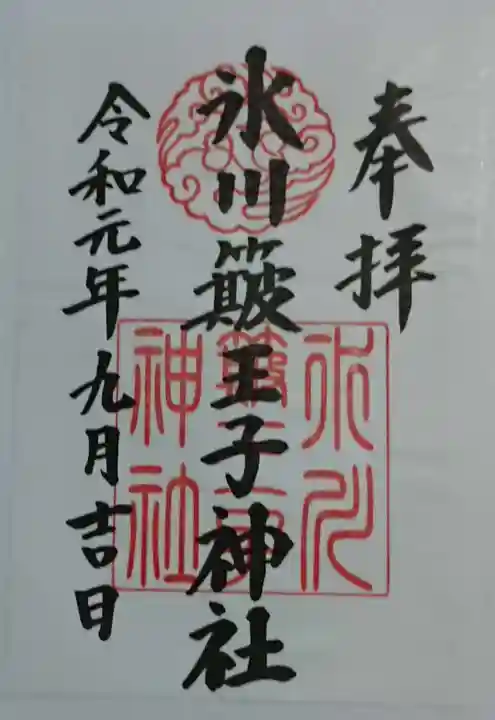 奉拝
氷川簸王子神社
令和元年九月吉日
氷川
簸王子
神社